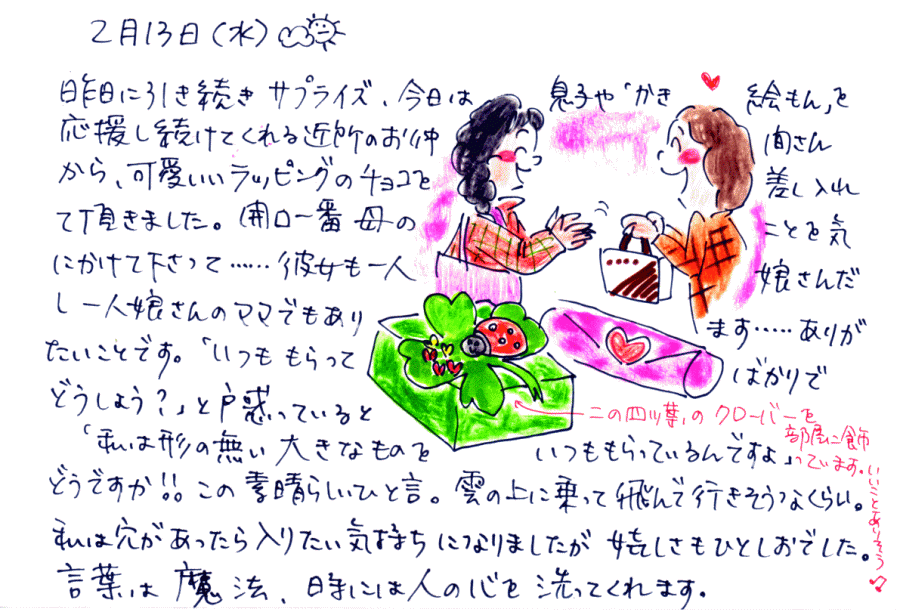 2月13日(水)
昨日に引き続きサプライズ、今日は 息子や「かき 絵もん」を
応援し続けてくれる近所のお仲 間さん
から、可愛いいラッピングのチョコを 差し入れ
て頂きました。開口一番 母の ことを気
にかけて下さって……彼女も一人 娘さんだ
し一人娘さんのママでもあり ます……ありが
たいことです。「いつももらって ばかりで
どうしよう?」と戸惑っていると
「私は形の無い大きなものを いつももらっているんですよ」
どうですか!!この素晴らしいひと言。雲の上に乗って飛んで行きそうなくらい。
私は穴があったら入りたい気持ちになりましたが嬉しさもひとしおでした。
言葉は魔法、時には人の心を洗ってくれます。
この四ツ葉のクローバーを
部屋に飾
っています。いいことありそう